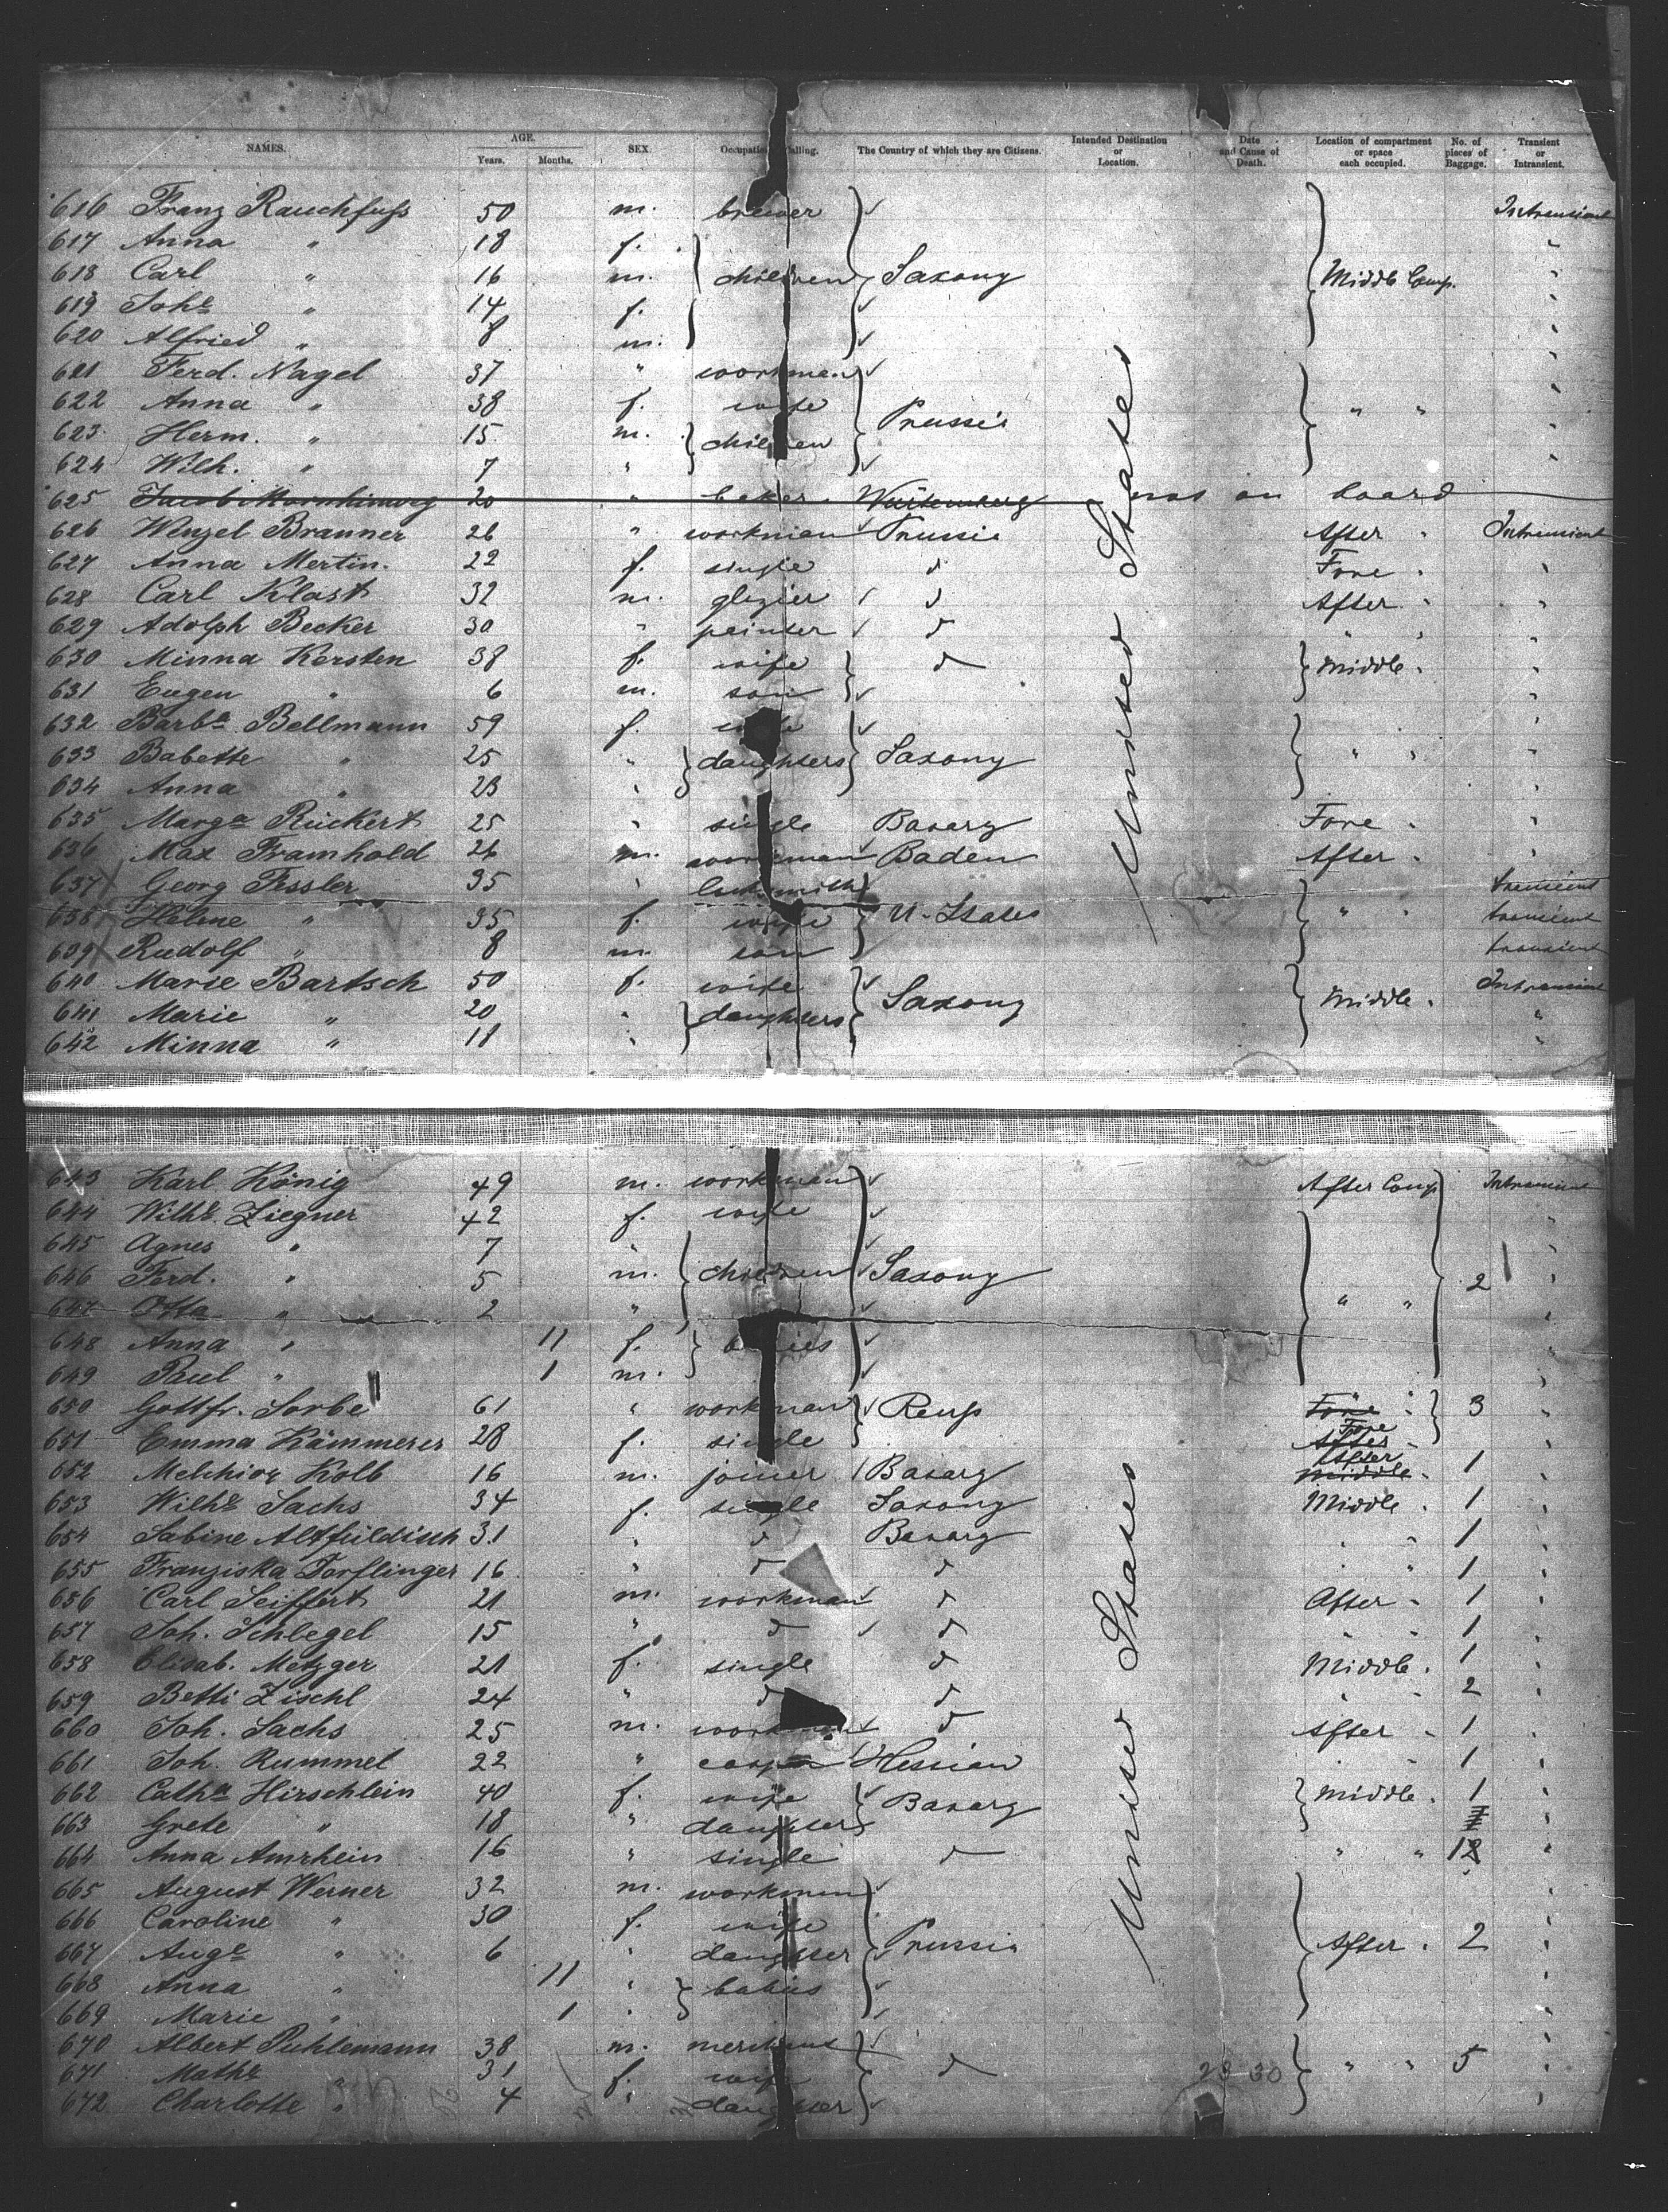 NAMES. AGE. Years. Months. SEX. Occupation Calling. The Country of which they are Citizens. Intended Destination or Location. Date and Cause of Death. Location of compartment or space each occupied. No. of pieces of Baggage. Transient or Intransient.
616 Franz Rauchfuss 50 m. brewer Intransient
617 Anna " 18 f. "
618 Carl " 16 m. children Saxony Middle Comp. "
619 Johe " 14 f. "
620 Alfried " 8 m. "
621 Ferd. Nagel 37 " workman "
622 Anna " 38 f. wife Prussia " " "
623 Herm. " 15 m. children "
624 Wilh. " 7 " "
625 Jacob 20 " baker Würtemberg not on board
626 Wenzel Branner 26 " workman Prussia After " Intransient
627 Anna Mertin. 22 f. single d Fore " "
628 Carl Klast 32 m. glazier d After " "
629 Adolph Becker 30 " painter d " " "
630 Minna Kersten 38 f. wife d Middle " "
631 Eugen " 6 m. son "
632 Barba Bellmann 59 f. wife "
633 Babette " 25 " daughters Saxony " " "
634 Anna " 23 " "
635 Marga Rückert 25 " single Bavary Fore " "
636 Max Framhold 26 m. workman Baden After " "
637 Georg Fessler 35 " locksmith transient
638 Helene " 35 f. wife U. States " " transient
639 Rudolf " 8 m. son transient
640 Marie Bartsch 50 f. wife Saxony Middle " Intransient
641 Marie " 20 " daughters "
642 Minna " 18 " "
United States
643 Karl König 49 m. workman After Comp Intransient
644 Wilhe. Ziegner 42 f. wife "
645 Agnes " 7 " "
646 Ferd. " 5 m. children Saxony 2 "
647 Otto " 2 " " " "
648 Anna " 11 f. babies "
649 Paul " 1 m. "
650 Gottfr. Sorbe 61 " workman Reuss Fore " 3 "
651 Emma Kämmerer 28 f. single After Fore "
652 Melchior Kolb 16 m. joiner Bavary Middle After 1 "
653 Wilhe Sachs 34 f. single Saxony Middle " 1 "
654 Sabine Altfuldisch 31 " d Bavary " " 1 "
655 Franziska Torflinger 16 " d d " " 1 "
656 Carl Seiffert 21 m. workman d After " 1 "
657 Joh. Schlegel 15 " d d " " 1 "
658 Elisab. Metzger 21 f. single d Middle " 1 "
659 Betti Zischl 24 " d d " " 2 "
660 Joh. Sachs 25 m. workman d After " 1 "
661 Joh. Rummel 22 " Hessian " " 1 "
662 Catha Hirschlein 40 f. wife Bavary Middle " 1 "
663 Grete " 18 " daughter "
664 Anna Amrhein 16 " single d " " 1 "
665 August Werner 32 m. workman "
666 Caroline " 30 f. wife "
667 Auge " 6 " daughter Prussia After " 2 "
668 Anna " 11 " babies "
669 Marie " 1 " "
670 Albert Puhlemann 38 m. merchant "
671 Mathe " 31 f. wife d 23 30 " " 5 "
672 Charlotte " 4 " daughter "
United States